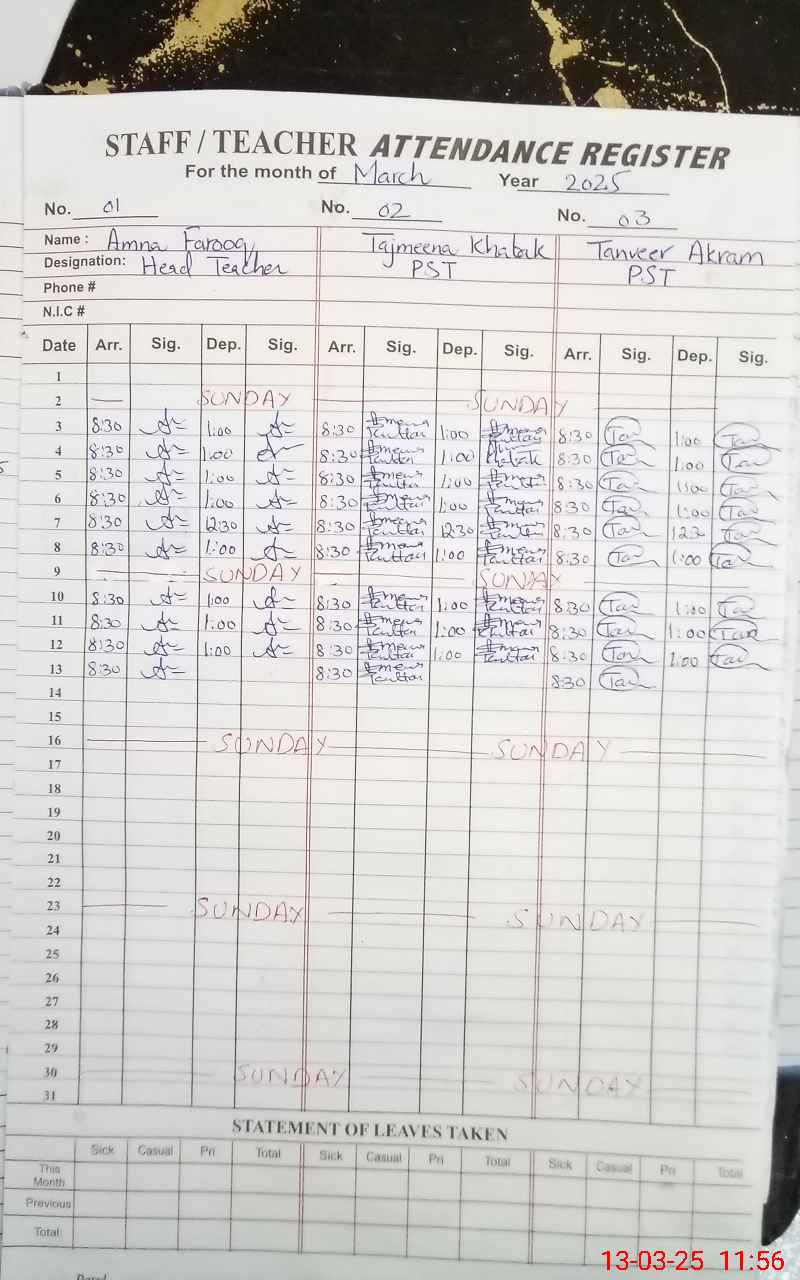 STAFF / TEACHER ATTENDANCE REGISTER
For the month of March Year 2025
No. 01 No. 02 No. 03
Name : Amna Farooq Tajmeena Khatak Tanveer Akram
Designation: Head Teacher PST PST
Phone #
N.I.C #
Date Arr. Sig. Dep. Sig. Arr. Sig. Dep. Sig. Arr. Sig. Dep. Sig.
1
2 SUNDAY SUNDAY
3 8:30 1:00 8:30 1:00 8:30 Tan 1:00 Tan
4 8:30 1:00 8:30 1:00 Khatak 8:30 Tan 1:00 Tan
5 8:30 1:00 8:30 1:00 8:30 Tan 1:00 Tan
6 8:30 1:00 8:30 1:00 8:30 Tan 1:00 Tan
7 8:30 12:30 8:30 1230 8:30 Tan Tan
8 8:30 1:00 8:30 1:00 8:30 Tan 1:00 Tan
9 SUNDAY SUNDAY
10 8:30 1:00 8:30 1:00 8:30 Tan 1:00 Tan
11 8:30 1:00 8:30 1:00 8:30 Tan 1:00 Tan
12 8:30 1:00 8:30 1:00 8:30 Tan 1:00 Tan
13 8:30 8:30 8:30 Tan
14
15
16 SUNDAY SUNDAY
17
18
19
20
21
22
23 SUNDAY SUNDAY
24
25
26
27
28
29
30 SUNDAY SUNDAY
31
STATEMENT OF LEAVES TAKEN
Sick Casual Pri Total Sick Casual Pri Total Sick Casual Pri Total
This Month
Previous
Total:
13-03-25 11:56